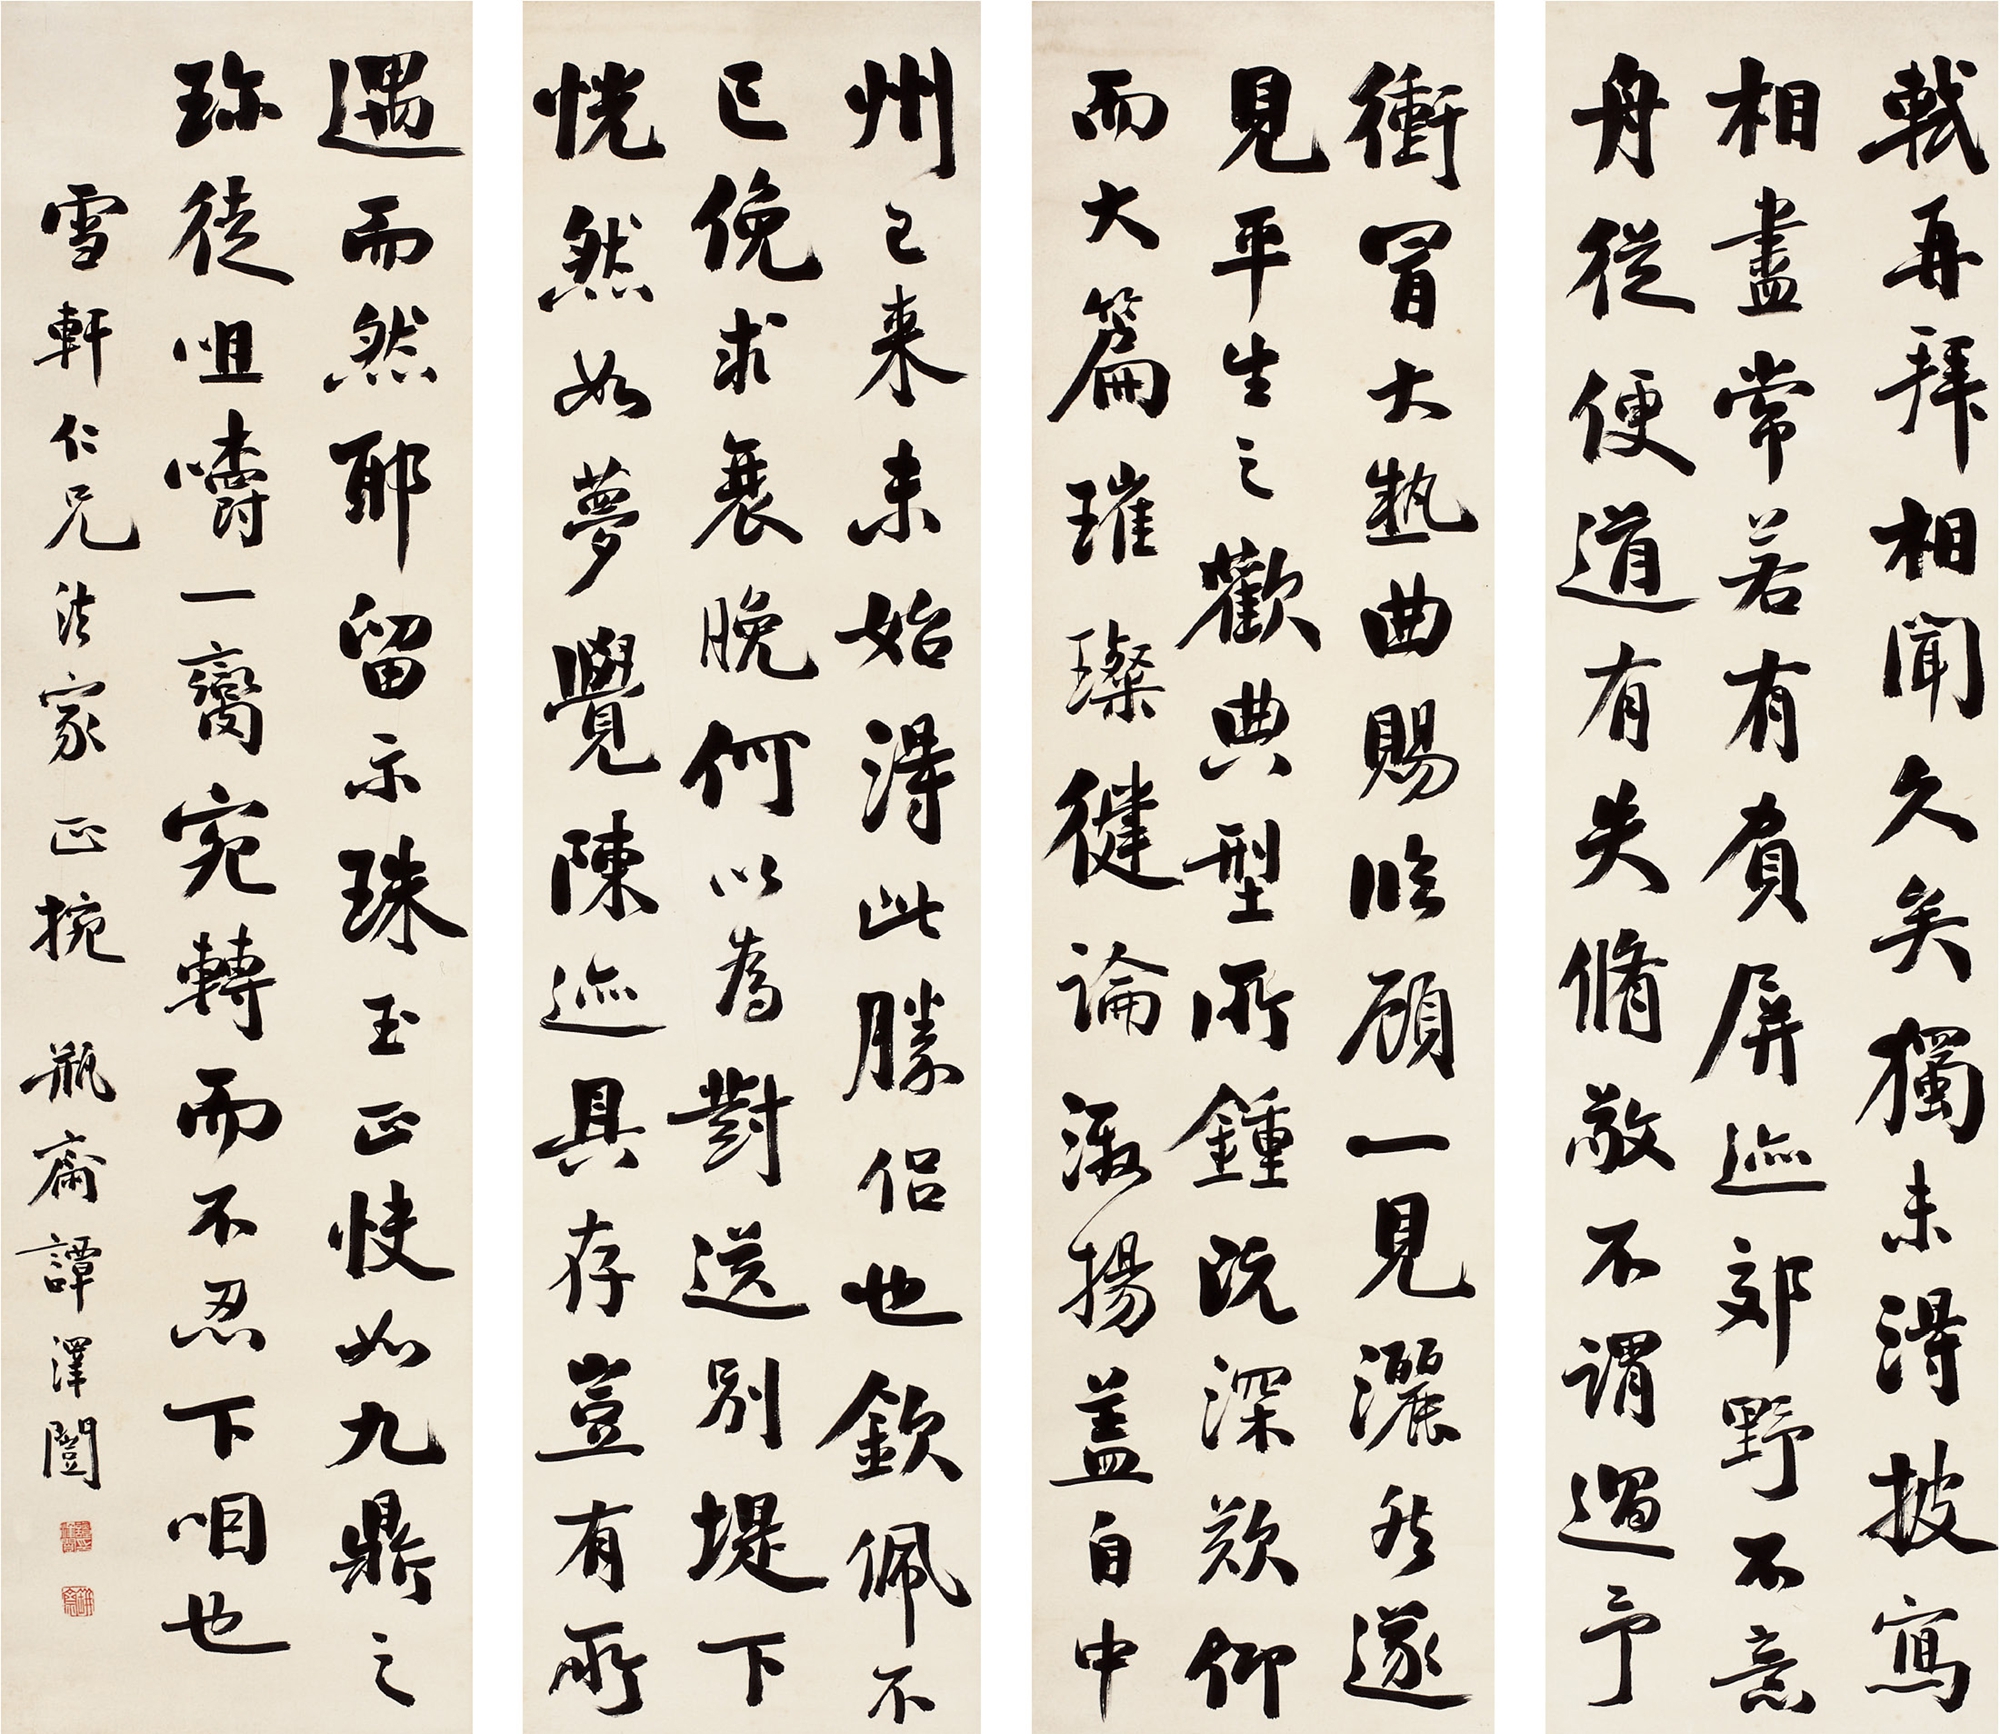 軾再拜相聞久矣獨未得披寫
相盡常若有負屏迹郊野不意
舟從便道有失脩敬不謂過予
衝冒大熱曲賜臨顧一見灑然遂
見平生之歡典型所鍾既深欽仰
而大篇璀璨健論激揚蓋自中
州已來未始得此勝侶也欽佩不
已俛求衰晚何以為對送別堤下
恍然如夢覺陳迹具存豈有所
遇而然耶留示珠玉正快如九鼎之
珍徒咀嚼一臠宛轉而不忍下咽也
雪軒仁兄法家正捥 瓶齋譚澤闓